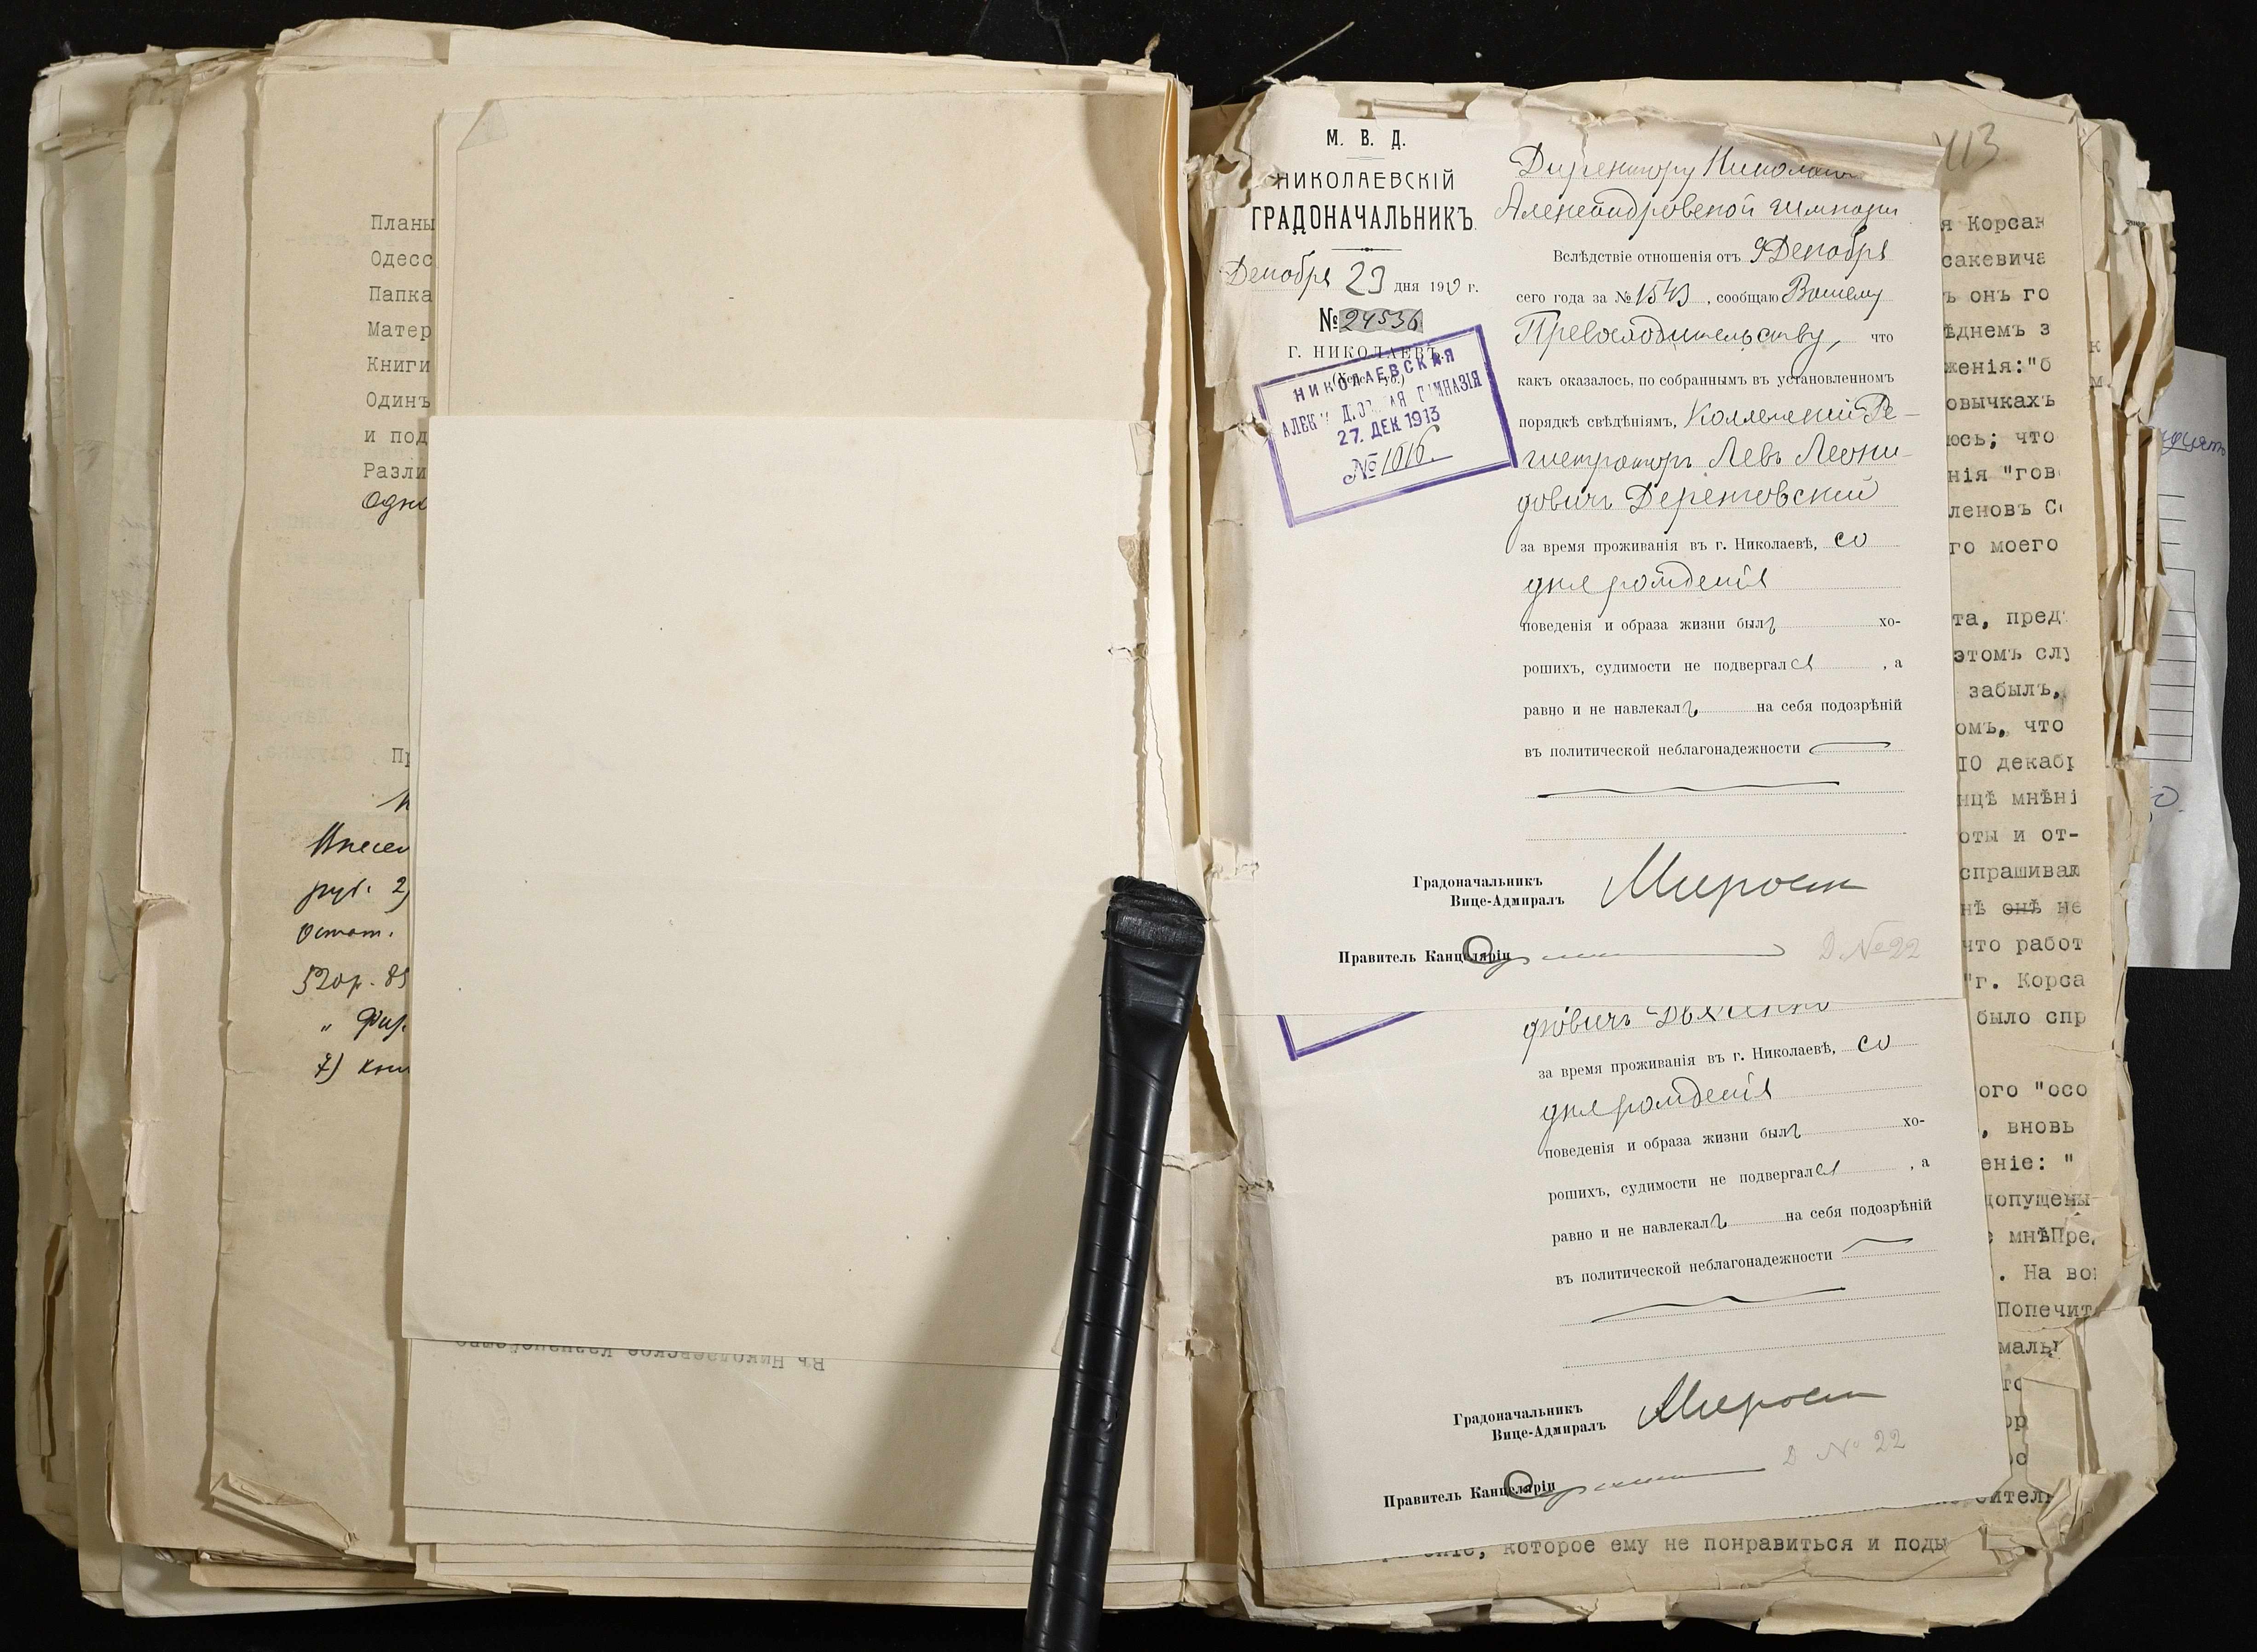 Планы
Одесс
Папка
Матер
Книги
Одинъ
и под
Разли
Одно
руб. 2)
Остат.
7)
Въ Николаевское Казначейство
М. В. Д.
НИКОЛАЕВСКІЙ
ГРАДОНАЧАЛЬНИКЪ.
Декабря 23 дня 1913 г.
№ 24536
Г. НИКОЛАЕВЪ.
(Херс. губ.)
НИКОЛАЕВСКАЯ
АЛЕК Д ОВ АЯ ГИМНАЗІЯ
27. ДЕК 1913
№ 1616.
113
Директору Николаев
Александровской Гимназіи
Вслѣдствіе отношенія отъ 9 Декабря
сего года за № 1543, сообщаю Вашему
Превосходительству, что
какъ оказалось, по собраннымъ въ установленномъ
порядкѣ свѣдѣніямъ, Коллежскій Ре-
гистраторъ Левъ Леони-
довичъ
за время проживанія въ г. Николаевѣ, со
дня рожденія
поведенія и образа жизни былъ хо-
рошихъ, судимости не подвергался, а
равно и не навлекалъ на себя подозрѣній
въ политической неблагонадежности
Градоначальникъ
Вице-Адмиралъ
Правитель Канцеляріи
Д. № 22
за время проживанія въ г. Николаевѣ, со
дня рожденія
поведенія и образа жизни былъ хо-
рошихъ, судимости не подвергался, а
равно и не навлекалъ на себя подозрѣній
въ политической неблагонадежности
Градоначальникъ
Вице-Адмиралъ
Д № 22
Правитель Канцеляріи
я Корсак
сакевича
ъ онъ го
ѣднемъ з
женія:"б
овычкахъ
юсь; что
нія "гов
леновъ Со
го моего
та, пред
этомъ слу
забылъ,
омъ, что
10 декабр
нцѣ мнѣні
оты и от-
спрашиваю
нѣ онѣ не
что работ
"г. Корса
было спр
ого "осо
, вновь
еніе: "
допущены
мнѣПре
. На во
Попечит
маль
ител
еніе, которое ему не понравиться и поды